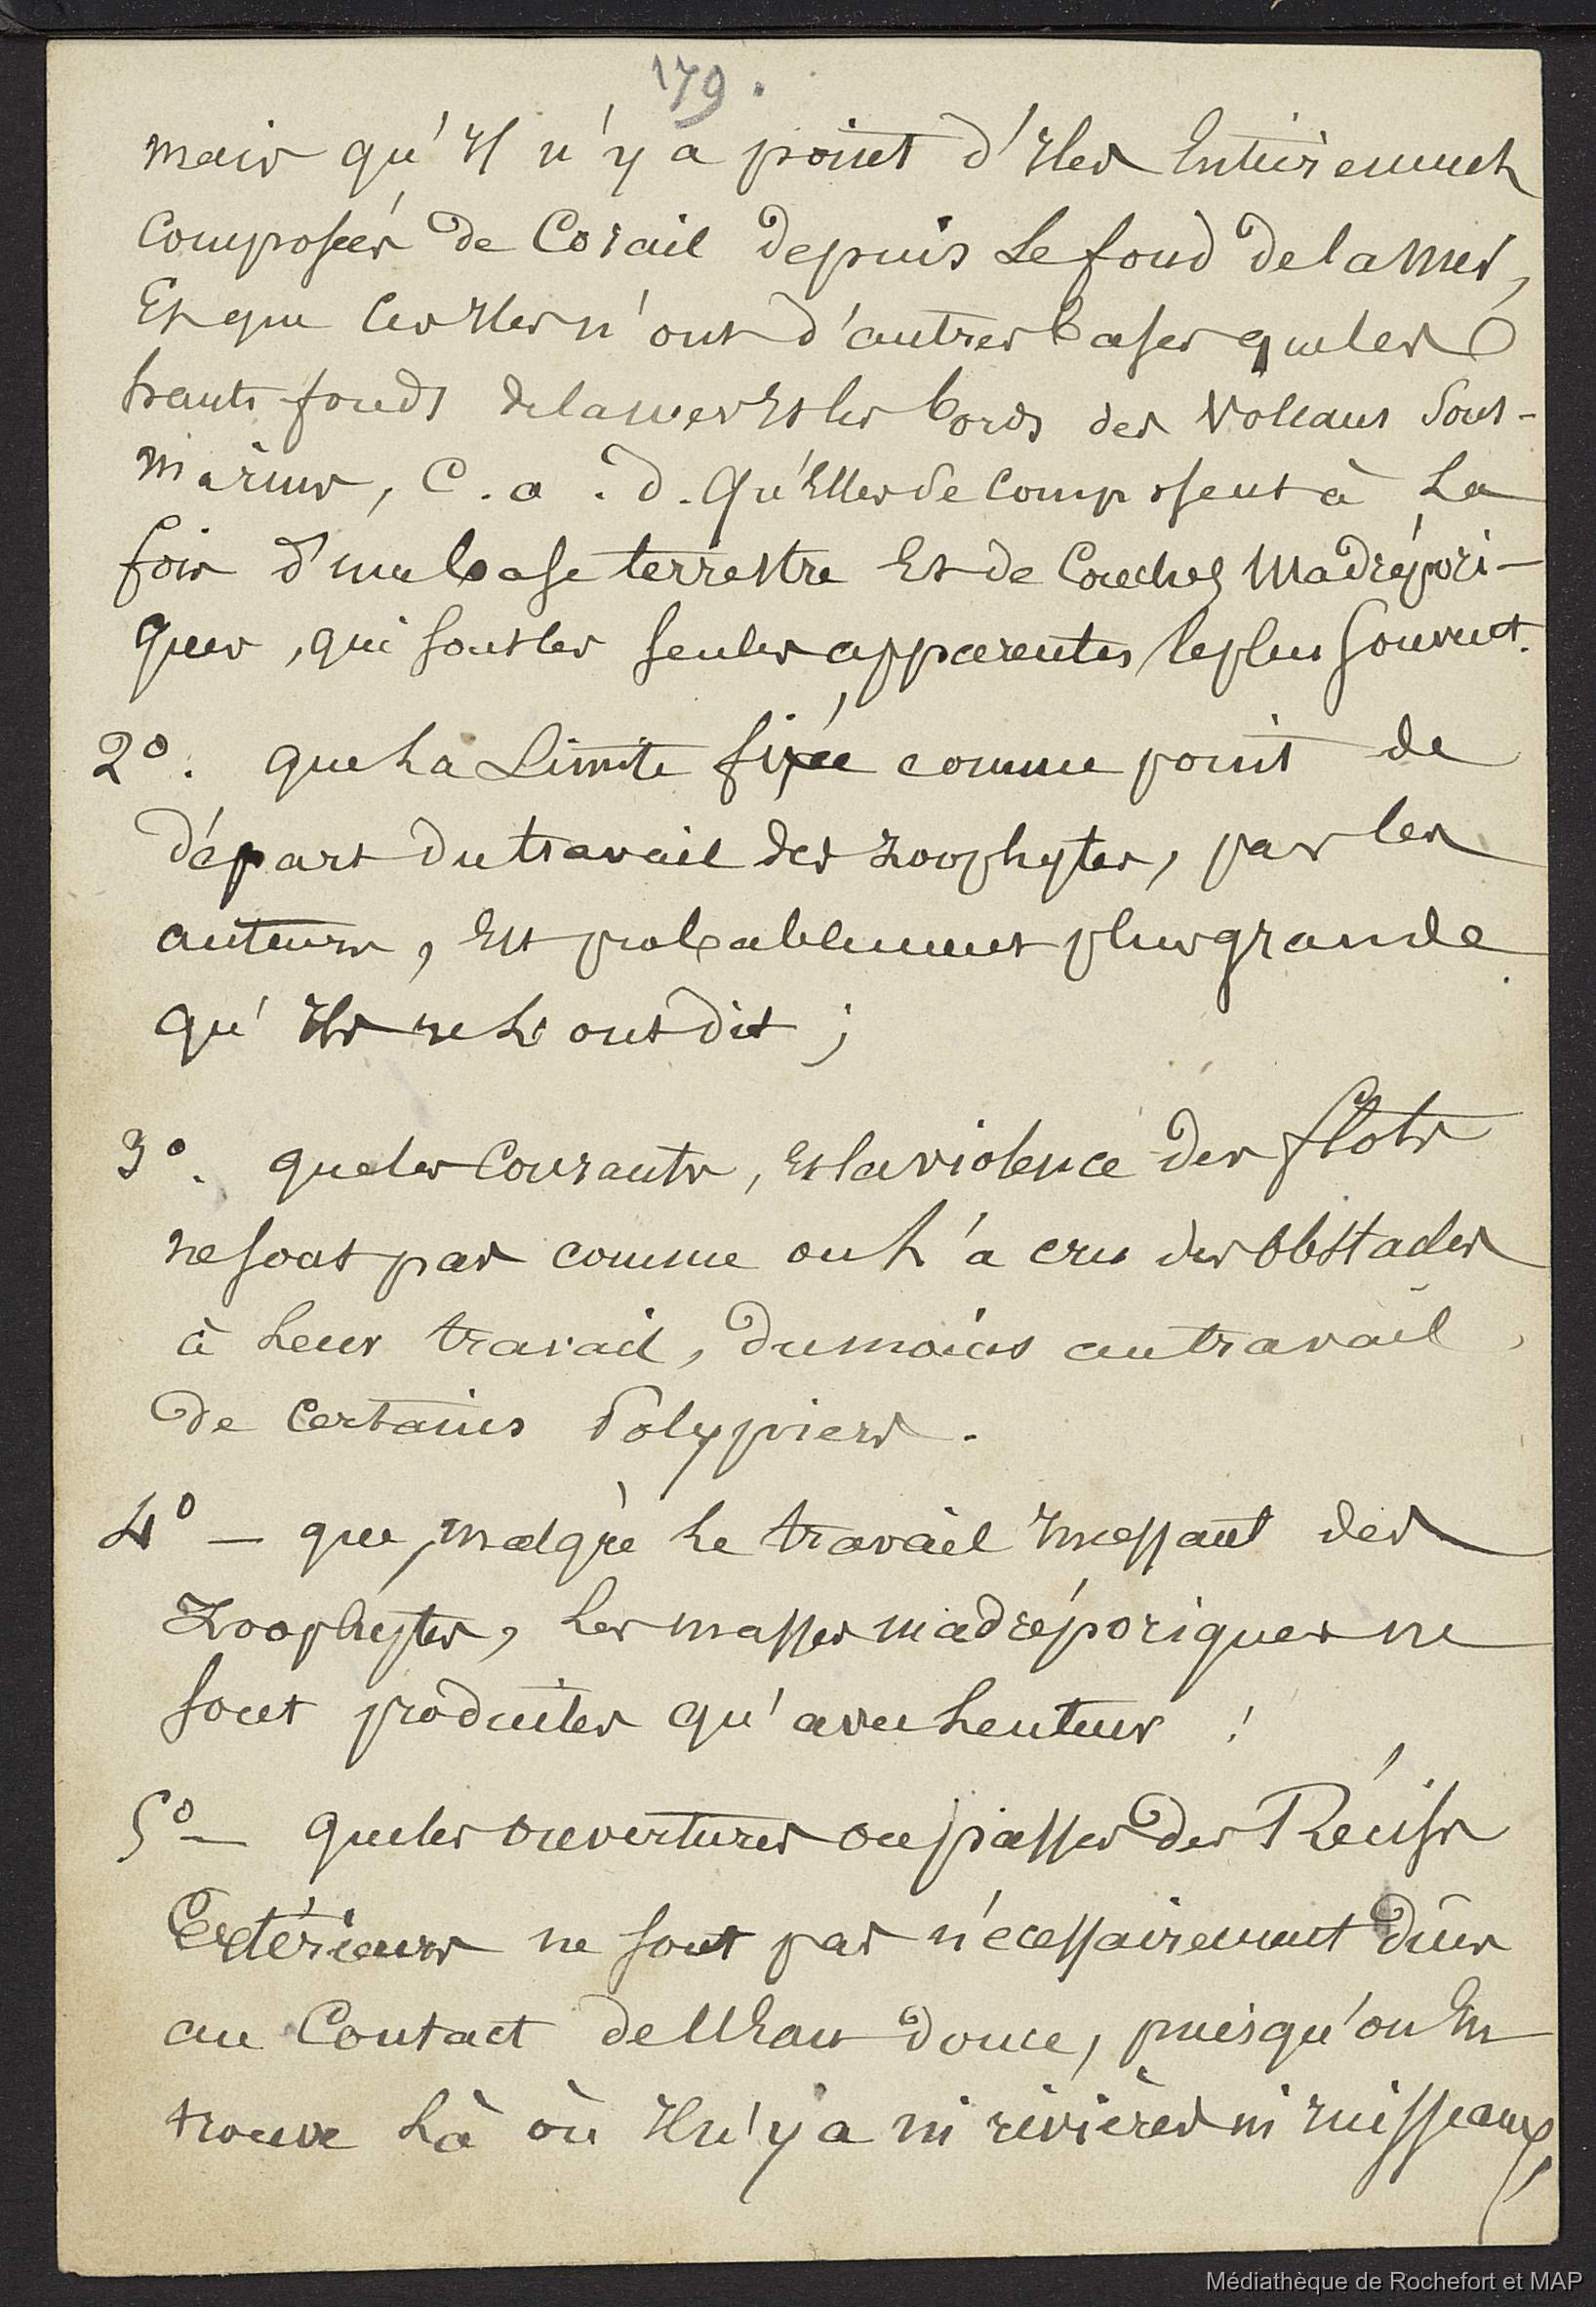 179.
mais qu'Il n'y a point d'Iles Entièrement
Composées de Corail depuis Le fond de la Mer,
Et que les Iles n'ont d'autres bases que les
hauts fonds de la mer Et les bords des Volcans Sous-
marins, C. a. d. Qu'Elles se Composent à La
fois d'une base terrestre Et de Couches Madrépori-
ques, qui sont les seules apparentes le plus Souvent.
2°. que La Limite fixée comme point de
départ du travail des zoophytes, par les
auteurs, Est probablement plus grande
qu'Ils ne L'ont dit ;
3°. que les Courants, Et la violence des flots
ne sont pas comme on L'a cru des Obstacles
à Leur travail, Du moins au travail
de Certains Polypiers.
4° — que, malgré Le travail Incessant des
Zoophytes, Les masses madréporiques ne
sont produites qu'avec Lenteur !
5° — que les ouvertures ou passes des Récifs
Extérieurs ne sont pas nécessairement Dûes
au Contact de l'Eau douce, puisqu'on En
trouve Là où Il n'y a ni rivières ni ruisseaux,
Médiathèque de Rochefort et MAP